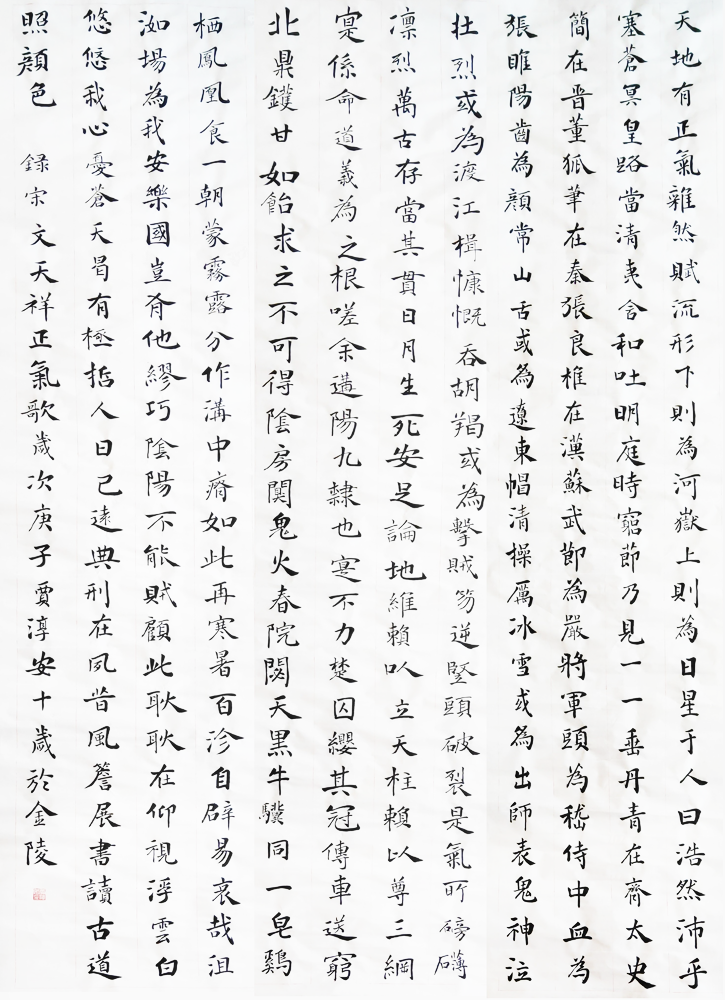 天地有正氣雜然賦流形下則為河嶽上則為日星于人曰浩然沛乎
塞蒼冥皇路當清夷含和吐明庭時窮節乃見一一垂丹青在齊太史
簡在晋董狐筆在秦張良椎在漢蘇武節為嚴將軍頭為嵇侍中血為
張睢陽齒為顏常山舌或為遼東帽清操厲冰雪或為出師表鬼神泣
壮烈或為渡江楫慷慨吞胡羯或為擊賊笏逆竪頭破裂是氣所磅礴
凛烈萬古存當其貫日月生死安足論地維賴以立天柱賴以尊三綱
寔係命道義為之根嗟余遘陽九隸也寔不力楚囚纓其冠傳車送窮
北鼎鑊甘如飴求之不可得陰房闃鬼火春院閟天黑牛驥同一皂鷄
栖鳳凰食一朝蒙霧露分作溝中瘠如此再寒暑百沴自辟易哀哉沮
洳場為我安樂國豈有他繆巧陰陽不能賊顧此耿耿在仰視浮雲白
悠悠我心憂蒼天曷有極哲人日已遠典刑在夙昔風簷展書讀古道
照顏色 録宋文天祥正氣歌歲次庚子賈淳安十歲於金陵